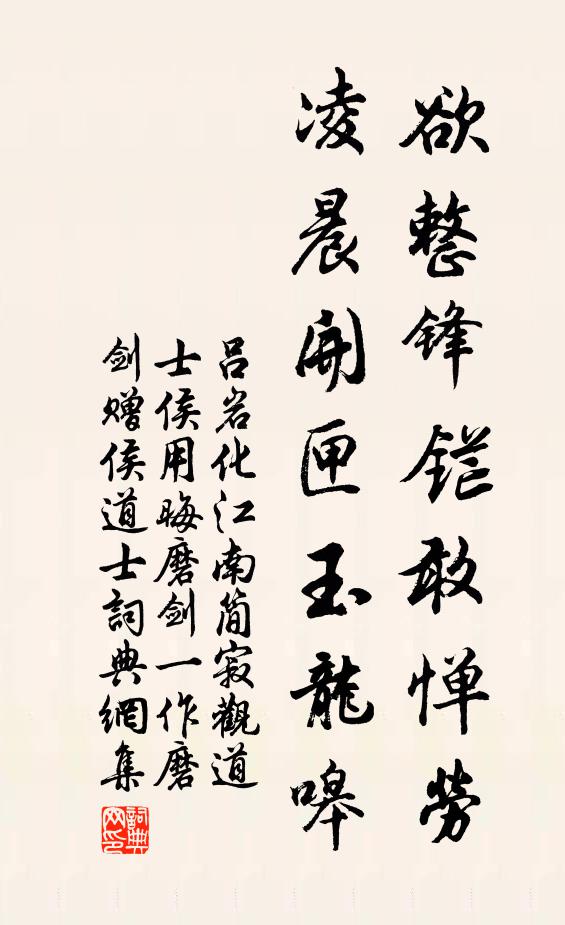 欲整锋鋩敢惮劳
凌晨開匣玉龍嘷
吕岩化江南简寂觀道
士侯用晦磨剑一作磨
剑赠侯道士詞典網集
詞典网印